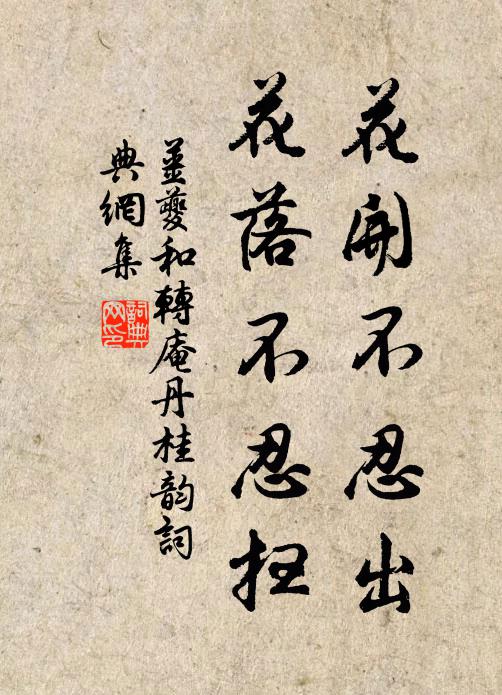 花開不忍出
花落不忍掃
姜夔和轉庵丹桂韵詞
典網集
詞典
网印